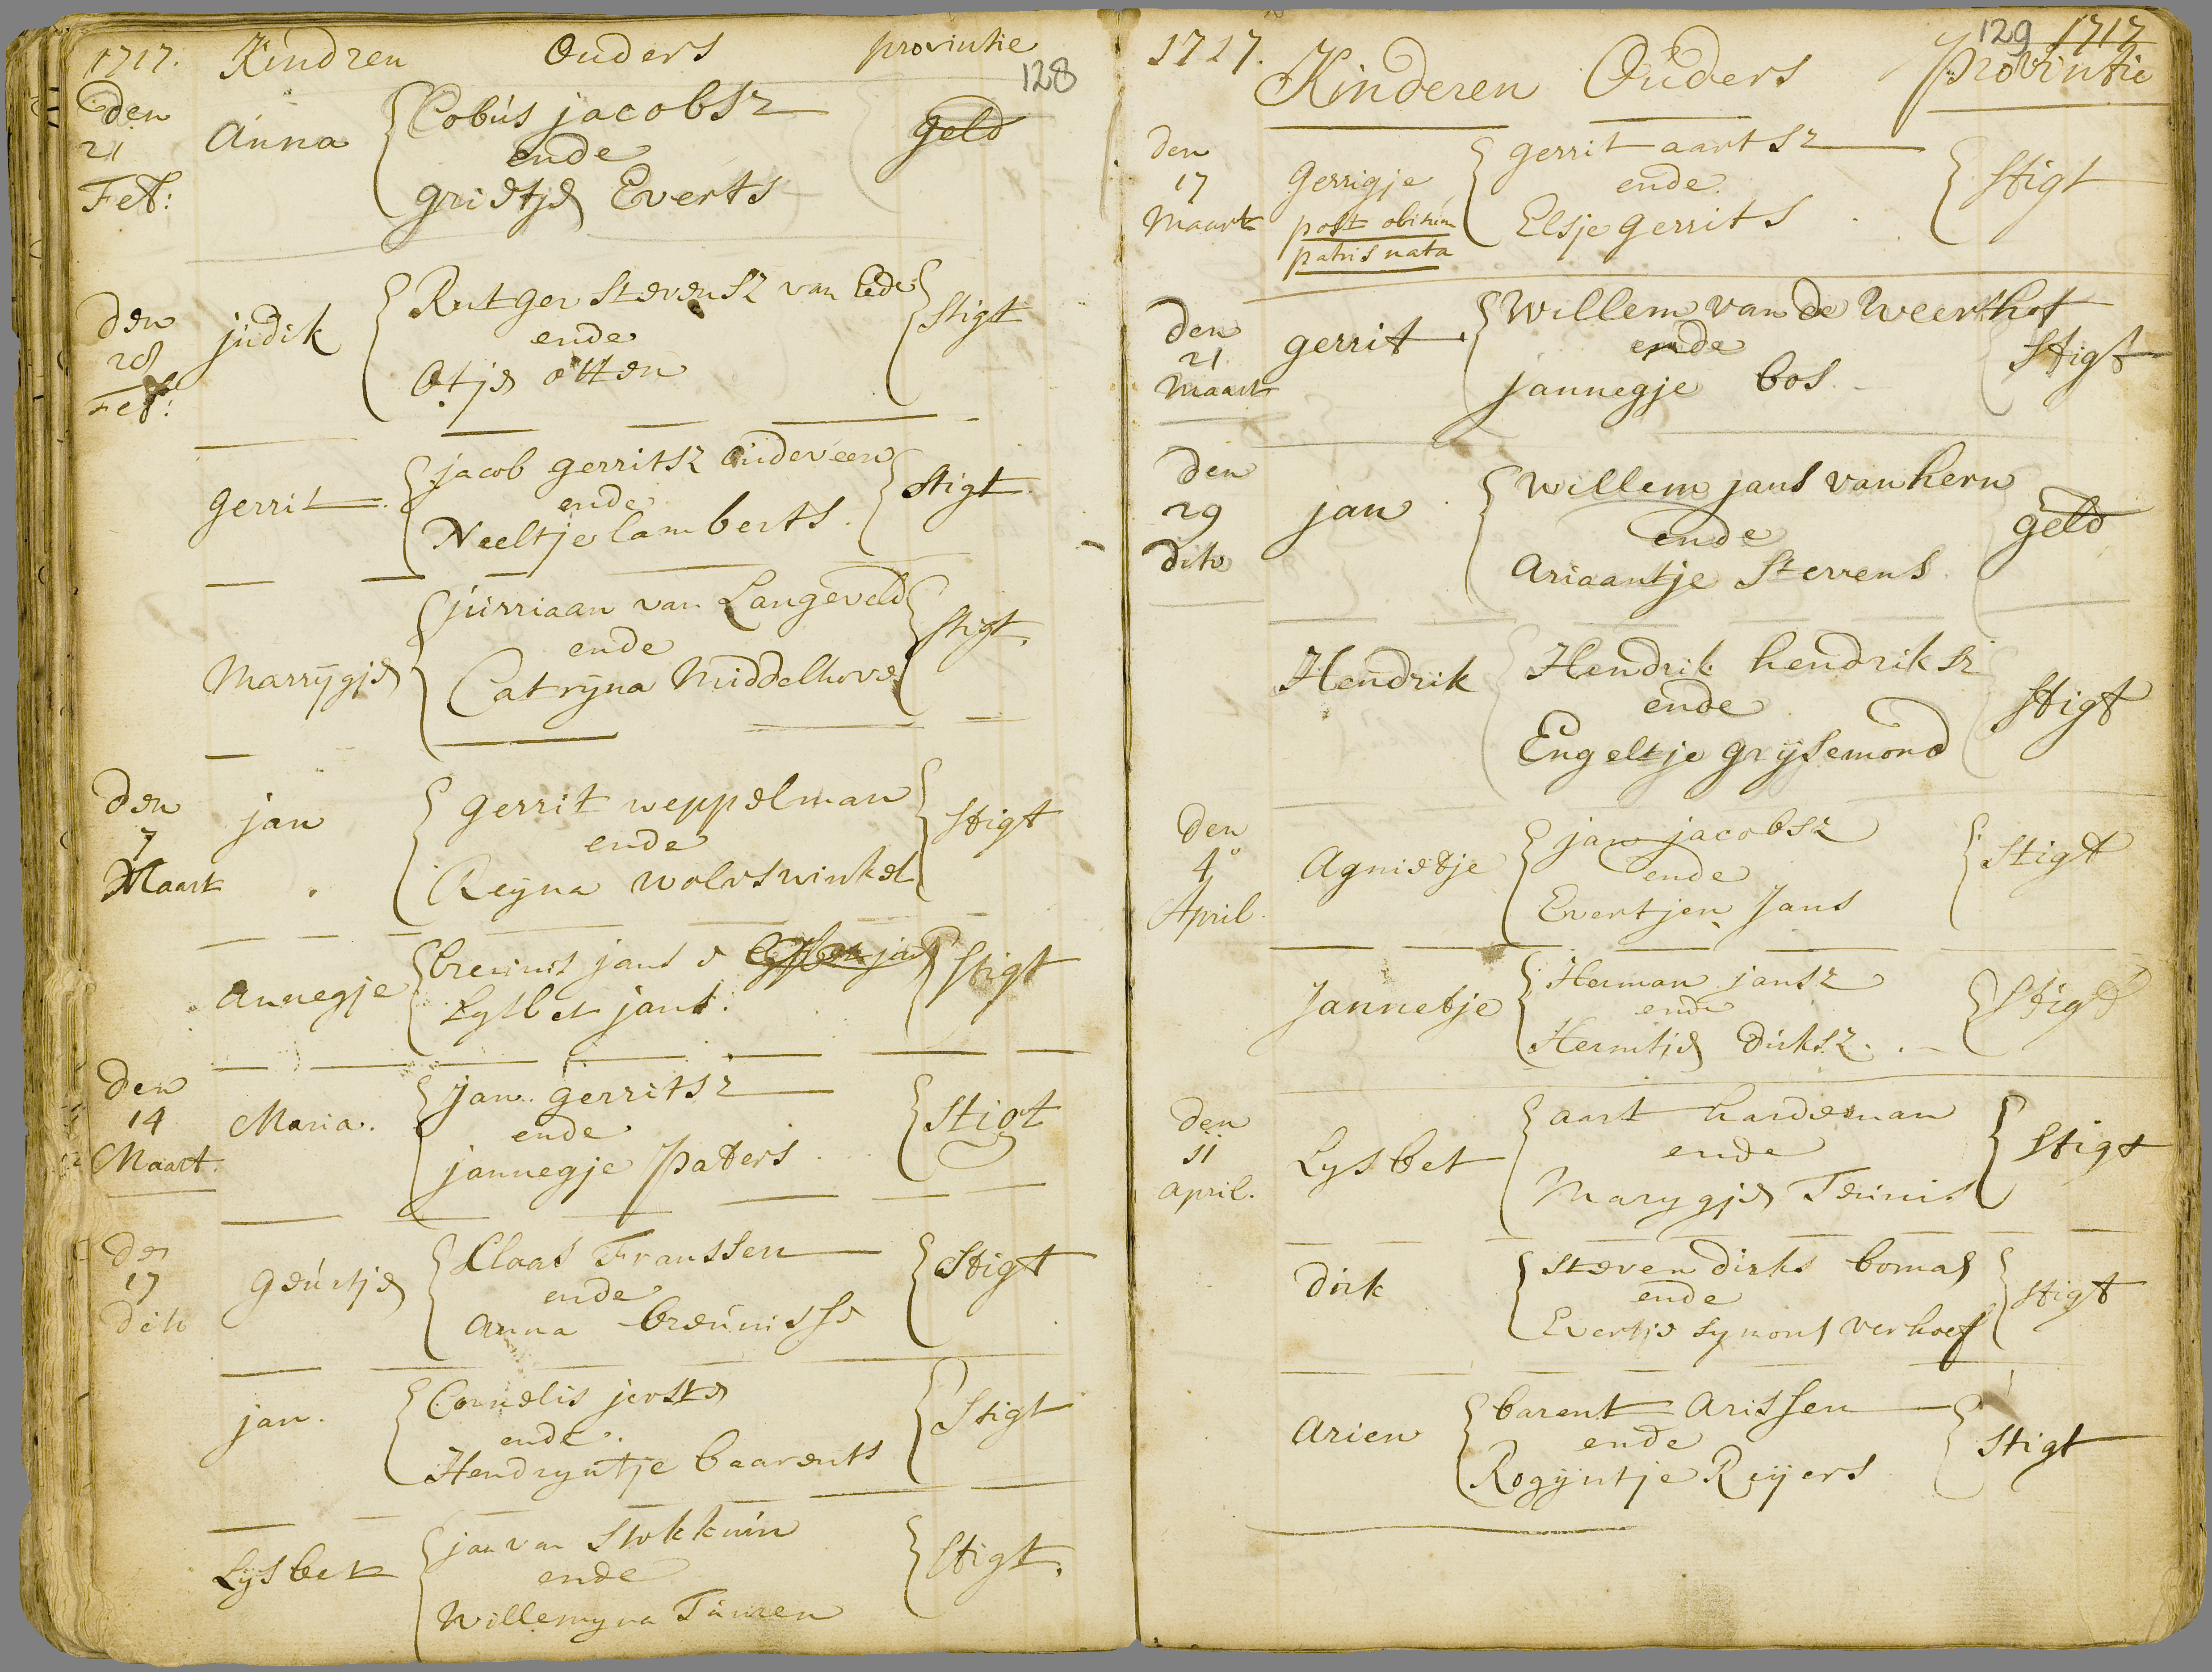 1717. Kindren Ouders provintie
128
den
21
Feb:
Anna
Cobus jacobsz
ende
grietje Everts
geld
den
28
Feb:
judik
Rutger Stevensz van Ede
ende
Otje otten
Stigt
gerrit
jacob gerritsz oudeveen
ende
Neeltje lamberts.
Stigt
Marrygje
jurriaan van Langeveld
ende
Catryna Middelhove
Stigt.
den
7
Maart
jan
gerrit weppelman
ende
Reyna wolvswinkel
Stigt
annegje
breunis jans e
Lysbet jans.
Stigt
den
14
Maart.
Maria.
jan gerritsz
ende
jannegje paters
Stigt
den
17
dito
geurtje
Claas Franssen
ende
anna breunisse
Stigt
jan.
Cornelis
ende.
Hendryntje baarents
Stigt
Lysbet
jan van Stokkum
ende
Willemyna
Stigt.
1717.
129 1717
Kinderen Ouders Provintie
den
17
Maart
Gerrigje
post obitum
patris nata
gerrit aartsz
ende
Elsje gerrits
Stigt
den
21
Maart
gerrit
Willem van de Weerthof
ende
jannegje bos.
Stigt
den
29
dito
jan
Willem jans van hern
ende
Ariaantje Stevens
geld
Hendrik
Hendrik hendriksz
ende
Engeltje grysemond
Stigt
den
4
April.
Agnietje
jan jacobsz
ende
Evertjen Jans
Stigt
Jannetje
Herman jansz
ende
Hermtje dirksz.
Stigt
den
11
april.
Lysbet
aart hardeman
ende
Marygje Teunis
Stigt
dirk
Steven dirks bomas
ende
Evertje Symons verhoef
Stigt
Arien
barent Arissen
ende
Rogyntje Reyers
Stigt